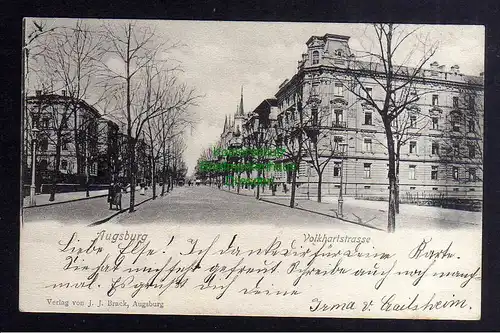 Augsburg
Volkhartstrasse
Liebe Else! Ich danke Dir für Deine Karte.
Sie hat mich sehr gefreut. Schreibe auch noch manch-
mal. Es grüßt Dich Deine
Irma v. Crailsheim.
Verlag von J. J. Brack, Augsburg